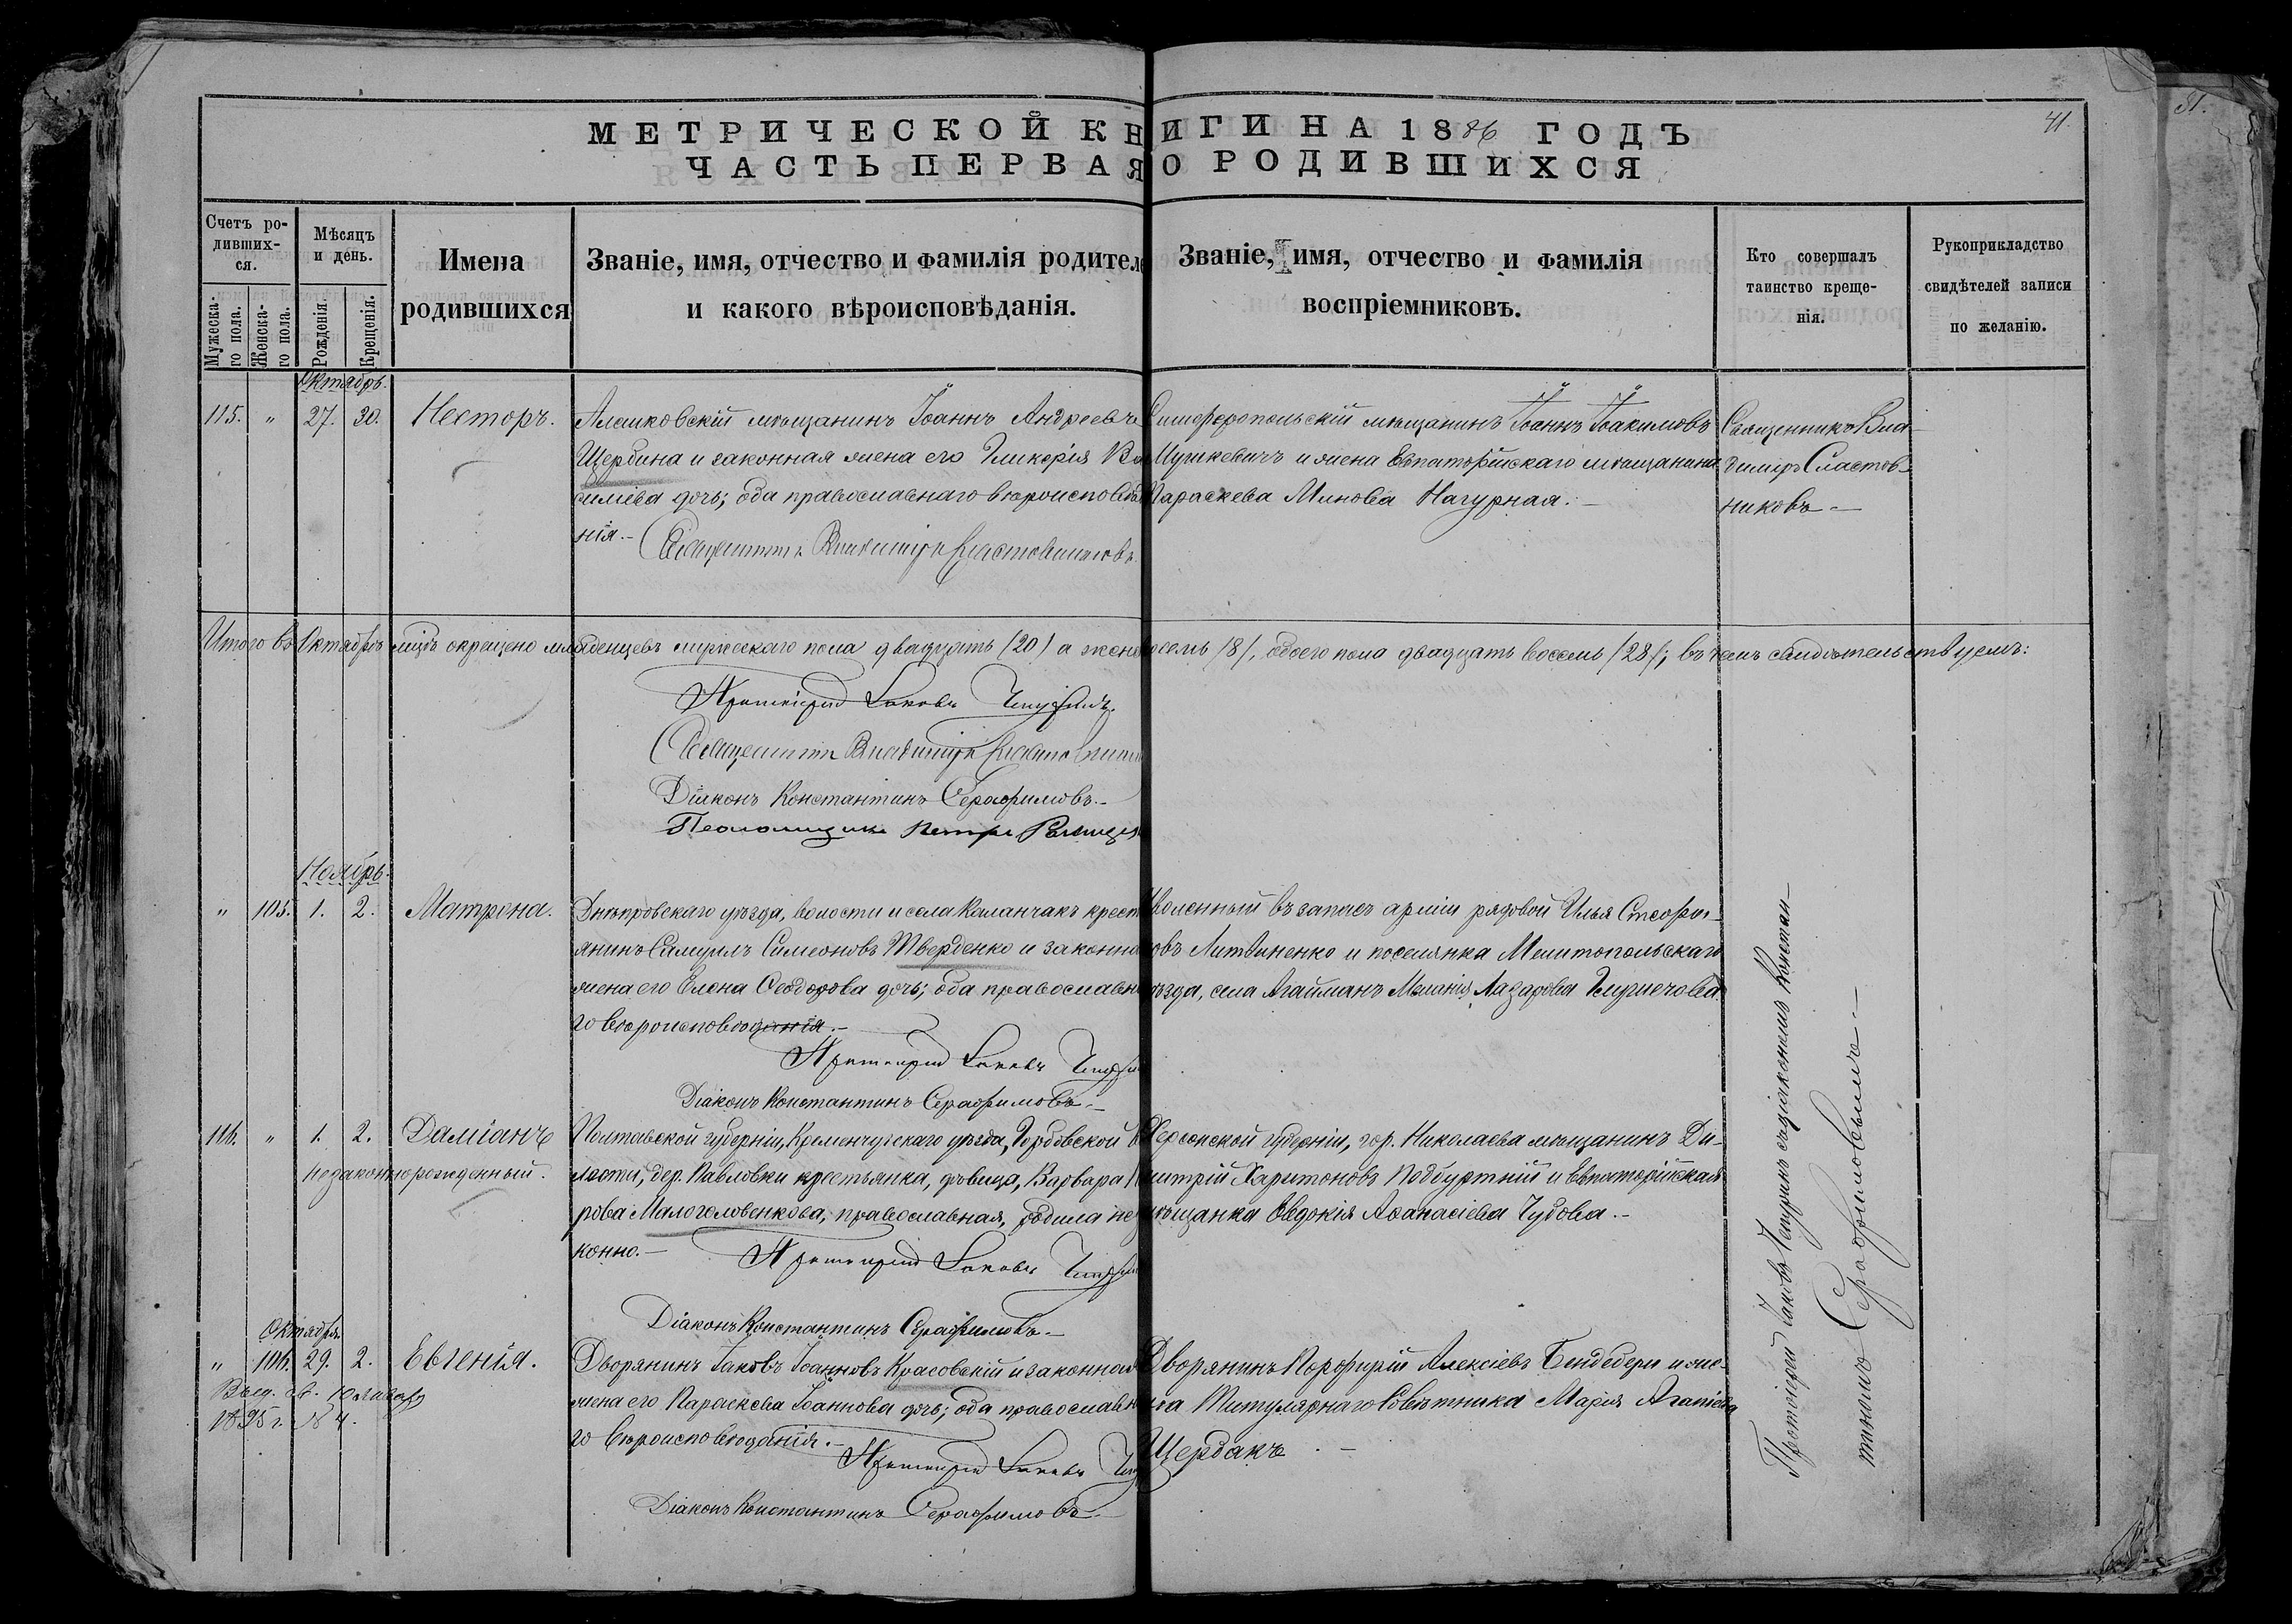 МЕТРИЧЕСКОЙ КНИГИ НА 1886 ГОДЪ
41.
81.
ЧАСТЬ ПЕРВАЯ О РОДИВШИХСЯ
Счетъ ро-
дивших-
ся.
Мужеска-
го пола.
Женска-
го пола.
Мѣсяцъ
и день.
Рожденія.
Крещенія.
Имена
родившихся
Званіе, имя, отчество и фамилія родител
и какого вѣроисповѣданія.
Званіе, имя, отчество и фамилія
воспріемниковъ.
Кто совершалъ
таинство креще-
нія.
Рукоприкладство
свидѣтелей записи
по желанію.
Октябрь.
115. " 27. 30. Несторъ.
Алешковскій мѣщанинъ Іоаннъ Андреевъ
Щербина и законная жена его Гликерія Ва
силіева дочь; оба православнаго вѣроисповѣда
нія.–
Священникъ Владиміръ Сластовниковъ
Симферопольскій мѣщанинъ Іоаннъ Іоакимовъ
и жена Евпаторійскаго мѣщанина
Параскева Минова Нагурная.–
Священникъ Вла-
диміръ Сластов-
никовъ–
Итого въ Октябрѣ мцѣ окрещено младенцевъ мужескаго пола двадцать (20) а женс восемь (8), обоего пола двадцать восемь (28); въ чемъ свидѣтельствуемъ:
Протоіерей Іаковъ Чепуринъ.
Священникъ Владиміръ Сластовник
Діаконъ Константинъ Серафимовъ.–
Псаломщикъ Петръ
Ноябрь.
" 105. 1. 2. Матрона.
Днѣпровскаго уѣзда, волости и села Каланчакъ крест
янинъ Самуилъ Симеоновъ Твербенко и законна
жена его Елена Ѳеодорова дочь; оба православна
го вѣроисповѣданія.–
Протоіерей Іаковъ Чепури
Діаконъ Константинъ Серафимовъ.–
Уволенный въ запасъ арміи рядовой Илья
овъ Литвиненко и поселянка Мелитопольскаго
уѣзда, села Агайманъ Меланія Лазарева
116. " 1. 2. Даміанъ
незаконнорожденный.
Полтавской губерніи, Кременчугскаго уѣзда, во
лости, дер. Павловки крестьянка, дѣвица, Варвара
рова Малоголовенкова, православная, родила неза
конно.–
Протоіерей Іаковъ Чепури
Діаконъ Константинъ Серафимовъ.–
Херсонской губерніи, гор. Николаева мѣщанинъ Ди-
митрій Харитоновъ Подбуртній и Евпаторійская
мѣщанка Евдокія Аѳанасіева Чубова.–
Октября
" 106. 29. 2. Евгенія.
Выд. св. 10 января
1895 г. № 4.
Дворянинъ Іаковъ Іоанновъ Красовскій и законная
жена его Параскева Іоаннова дочь; оба православна
го вѣроисповѣданія.–
Протоіерей Іаковъ Чеп
Діаконъ Константинъ Серафимовъ.–
Дворянинъ Порфирій Алексіевъ Бендебери и же-
на Титулярнаго Совѣтника Марія Агапіева
Щербакъ.–
Протоіерей Іаковъ Чепуринъ съ діакономъ Констан-
тиномъ Серафимовымъ.–